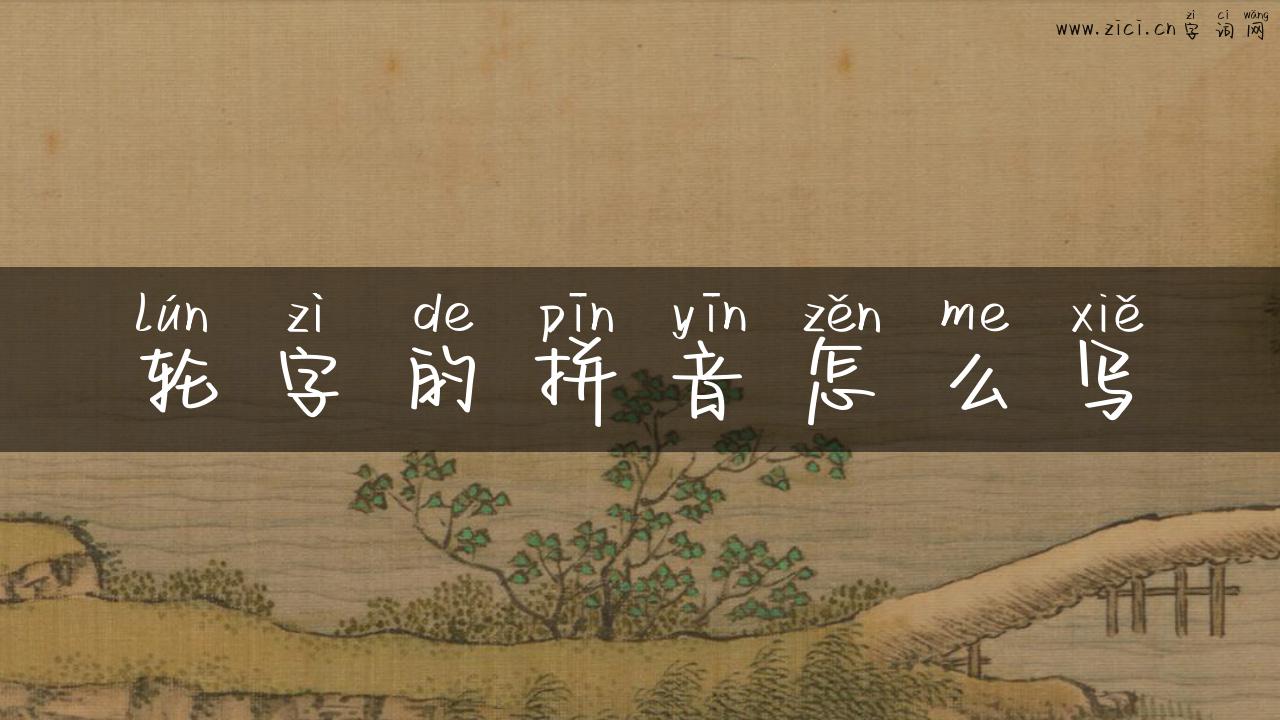 zì cí wǎng
www.zici.cn 字 词 网
lún zì de pīn yīn zěn me xiě
轮 字 的 拼 音 怎 么 写